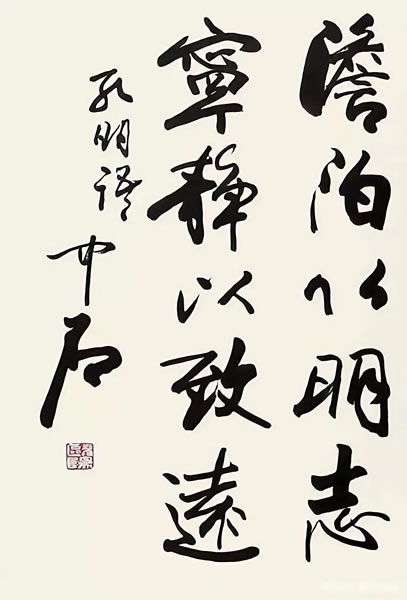 澹泊以明志
寧靜以致遠
孔明語
中石